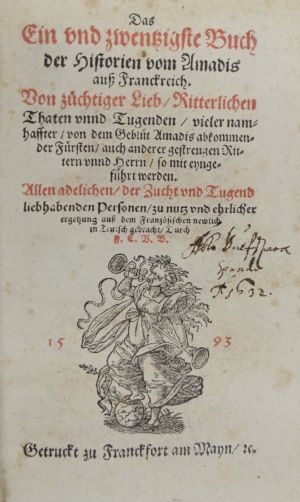 Das
Ein vnd zwentzigste Buch
der Historien vom Amadis
auß Franckreich.
Von züchtiger Lieb / Ritterlichen
Thaten vnnd Tugenden / vieler nam-
haffter / von dem Geblüt Amadis abkommen-
der Fürsten / auch anderer gestrengen Rit-
tern vnnd Herrn / so mit eynge-
führt werden.
Allen adelichen / der Zucht vnd Tugend
liebhabenden Personen / zu nutz vnd ehrlicher
ergetzung auß dem Frantzösischen newlich
in Teutsch gebracht / Durch
1632.
15 93
Getruckt zu Franckfort am Mayn / ꝛc.